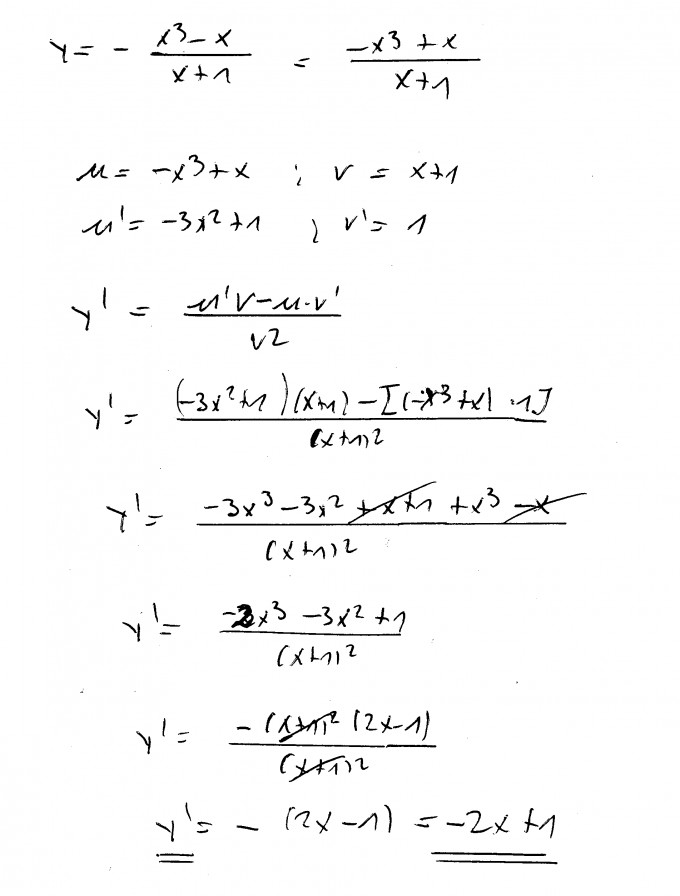 y = - (x³ - x)/(x + 1) = (-x³ + x)/(x + 1)
u = -x³ + x ; v = x + 1
u' = -3x² + 1 ; v' = 1
y' = (u'v - u·v')/v²
y' = ((-3x² + 1)(x + 1) - [(-x³ + x) · 1])/(x + 1)²
y' = (-3x³ - 3x² + x + 1 + x³ - x)/(x + 1)²
y' = (-2x³ - 3x² + 1)/(x + 1)²
y' = (-(x + 1)² (2x - 1))/(x + 1)²
y' = - (2x - 1) = -2x + 1